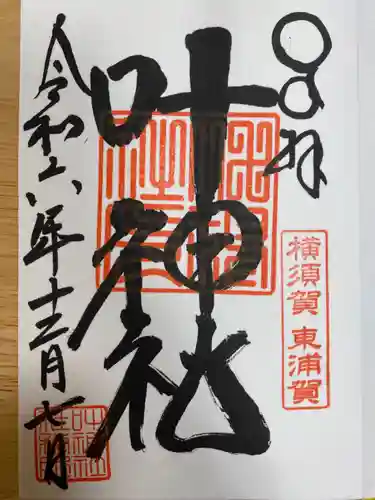 奉拝
横須賀 東浦賀
叶神社
令和六年十二月七日